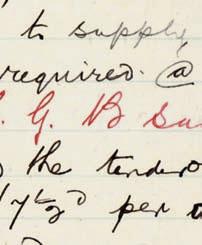 to supply
required. @
G. B Su
the tender
per